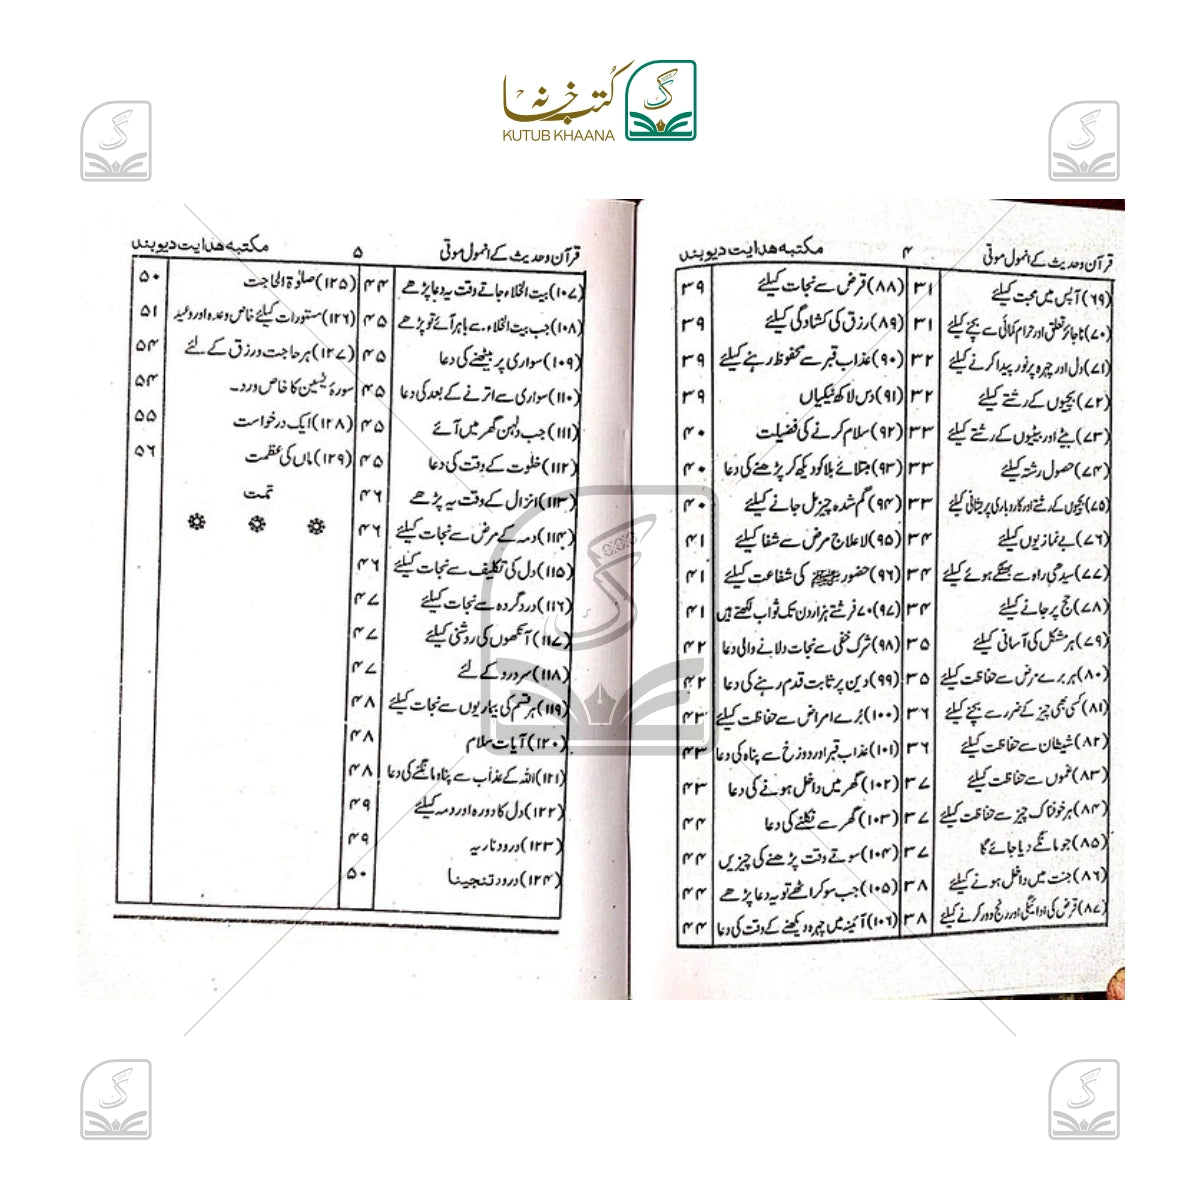 کتب خانہ
KUTUB KHAANA
قرآن و حدیث کے انمول موتی ۴ مکتبہ ھدایت دیوبند
(۶۹) آپس میں محبت کیلئے ۳۱
(۷۰) ناجائز تعلق اور حرام کمائی سے بچے کیلئے ۳۱
(۷۱) دل اور چہرہ پر نور پیدا کرنے کیلئے ۳۲
(۷۲) بچیوں کے رشتے کیلئے ۳۲
(۷۳) بیٹے اور بیٹیوں کے رشتے کیلئے ۳۳
(۷۴) حصول رشتہ کیلئے ۳۳
(۷۵) بچیوں کے رشتے اور کاروباری پریشانی کیلئے ۳۳
(۷۶) بے نمازیوں کیلئے ۳۴
(۷۷) سیدھی راہ سے بھٹکے ہوئے کیلئے ۳۴
(۷۸) حج پر جانے کیلئے ۳۴
(۷۹) ہر مشکل کی آسانی کیلئے ۳۵
(۸۰) ہر برے مرض سے حفاظت کیلئے ۳۵
(۸۱) کسی بھی چیز کے ضرر سے بچے کیلئے ۳۶
(۸۲) شیطان سے حفاظت کیلئے ۳۶
(۸۳) غموں سے حفاظت کیلئے ۳۷
(۸۴) ہر خوفناک چیز سے حفاظت کیلئے ۳۷
(۸۵) جو مانگے دیا جائے گا ۳۷
(۸۶) جنت میں داخل ہونے کیلئے ۳۸
(۸۷) قرض کی ادائیگی اور رنج دور کرنے کیلئے ۳۸
(۸۸) قرض سے نجات کیلئے ۳۹
(۸۹) رزق کی کشادگی کیلئے ۳۹
(۹۰) عذاب قبر سے محفوظ رہنے کیلئے ۳۹
(۹۱) دس لاکھ نیکیاں ۳۹
(۹۲) سلام کرنے کی فضیلت ۴۰
(۹۳) مبتلائے بلا کو دیکھ کر پڑھنے کی دعا ۴۰
(۹۴) گم شدہ چیز مل جانے کیلئے ۴۰
(۹۵) لا علاج مرض سے شفا کیلئے ۴۱
(۹۶) حضور ﷺ کی شفاعت کیلئے ۴۱
(۹۷) ۷۰ فرشتے ہزار دن تک ثواب لکھتے ہیں ۴۱
(۹۸) شرک خفی سے نجات دلانے والی دعا ۴۲
(۹۹) دین پر ثابت قدم رہنے کی دعا ۴۲
(۱۰۰) بُرے امراض سے حفاظت کیلئے ۴۳
(۱۰۱) عذاب قبر اور دوزخ سے پناہ کی دعا ۴۳
(۱۰۲) گھر میں داخل ہونے کی دعا ۴۳
(۱۰۳) گھر سے نکلنے کی دعا ۴۴
(۱۰۴) سوتے وقت پڑھنے کی چیزیں ۴۴
(۱۰۵) جب سو کر اٹھے تو یہ دعا پڑھے ۴۴
(۱۰۶) آئینہ میں چہرہ دیکھنے کے وقت کی دعا ۴۴
قرآن و حدیث کے انمول موتی ۵ مکتبہ ھدایت دیوبند
(۱۰۷) بیت الخلاء جاتے وقت یہ دعا پڑھے ۴۴
(۱۰۸) جب بیت الخلاء سے باہر آئے تو پڑھے ۴۵
(۱۰۹) سواری پر بیٹھنے کی دعا ۴۵
(۱۱۰) سواری سے اترنے کے بعد کی دعا ۴۵
(۱۱۱) جب دلہن گھر میں آئے ۴۵
(۱۱۲) خلوت کے وقت کی دعا ۴۵
(۱۱۳) انزال کے وقت یہ پڑھے ۴۶
(۱۱۴) دمہ کے مرض سے نجات کیلئے ۴۶
(۱۱۵) دل کی تکلیف سے نجات کیلئے ۴۶
(۱۱۶) درد گردہ سے نجات کیلئے ۴۷
(۱۱۷) آنکھوں کی روشنی کیلئے ۴۷
(۱۱۸) سر درد کے لئے ۴۷
(۱۱۹) ہر قسم کی بیماریوں سے نجات کیلئے ۴۸
(۱۲۰) آیات سلام ۴۸
(۱۲۱) اللہ کے عذاب سے پناہ مانگنے کی دعا ۴۸
(۱۲۲) دل کا دورہ اور دمہ کیلئے ۴۹
(۱۲۳) درود ناریہ ۴۹
(۱۲۴) درود تنجینا ۵۰
(۱۲۵) صلوٰۃ الحاجت ۵۰
(۱۲۶) مستورات کیلئے خاص وعدہ اور وعید ۵۱
(۱۲۷) ہر حاجت و رزق کے لئے ۵۴
سورۂ یٰسین کا خاص ورد۔ ۵۴
(۱۲۸) ایک درخواست ۵۵
(۱۲۹) ماں کی عظمت ۵۶
تمت